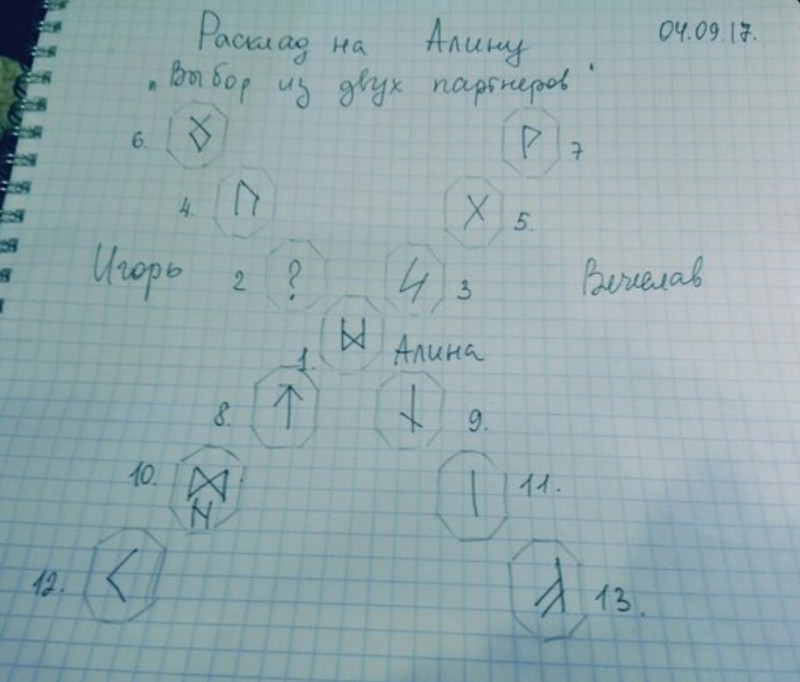 Расклад на Алину
04.09.17.
"Выбор из двух партнеров"
6. ᛟ
ᚹ 7
4. ᚢ
ᚷ 5.
Игорь
2 ?
3
Вечелав
1.
Алина
8. ᛏ
9.
10. ᛞ N
ᛁ 11.
12. ᚲ
13.